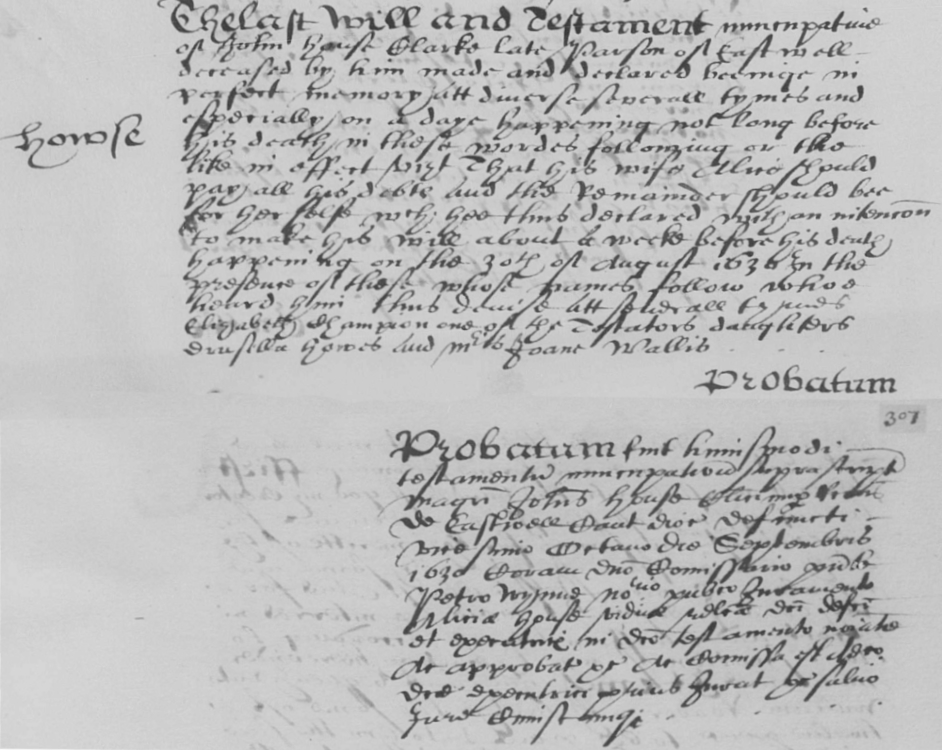 The last Will and Testament nuncpative
of John House Clarke late Parson of Eastwell
deceased by him made and declared beeinge in
perfect memory att diverse severall tymes and
especially on a daye happening not long before
his death in these wordes following or the
Howse
like in effect vizt That his wife Alice should
pay all his debts and the Remainder should bee
for her selfe wch hee thus declared with an intencon
to make his will about a weeke before his death
happening on the 30th of August 1630 In the
presence of these whose names follow whoe
heard him thus devise att severall tymes
Elizabeth Champion one of the Testators daughters
Drusilla Howes and mris Joane Wallis
Probatum
307
Probatum fuit huiusmodi
testamentu nuncpativu suprascript
magri Johis House Clici
de Eastwell Cant dioc defuncti
vicesimo Octavo die Septembris
1630 Coram dno Comissario
Petro Wynne no'rio publico Juramento
Aliciae House vidue relcae dci defti
et executrici in dco testamento noiate
Ac approbat &c Ac Comissa
dce executrici Jurat &c salvo
Jure